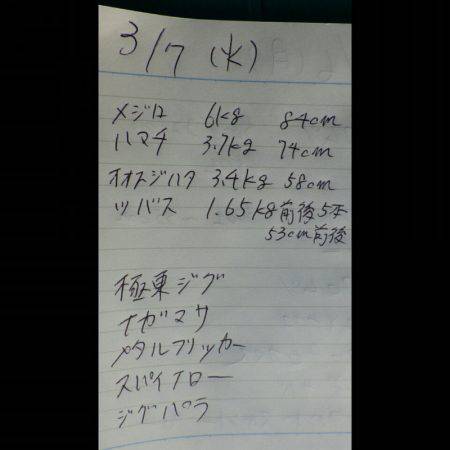 3/7 (水)
メジロ 6kg 84cm
ハマチ 3.7kg 74cm
オオスジハタ 3.4kg 58cm
ツバス 1.65kg前後5本
53cm前後
極東ジグ
ナガマサ
メタルフリッカー
スパイナロー
ジグパラ